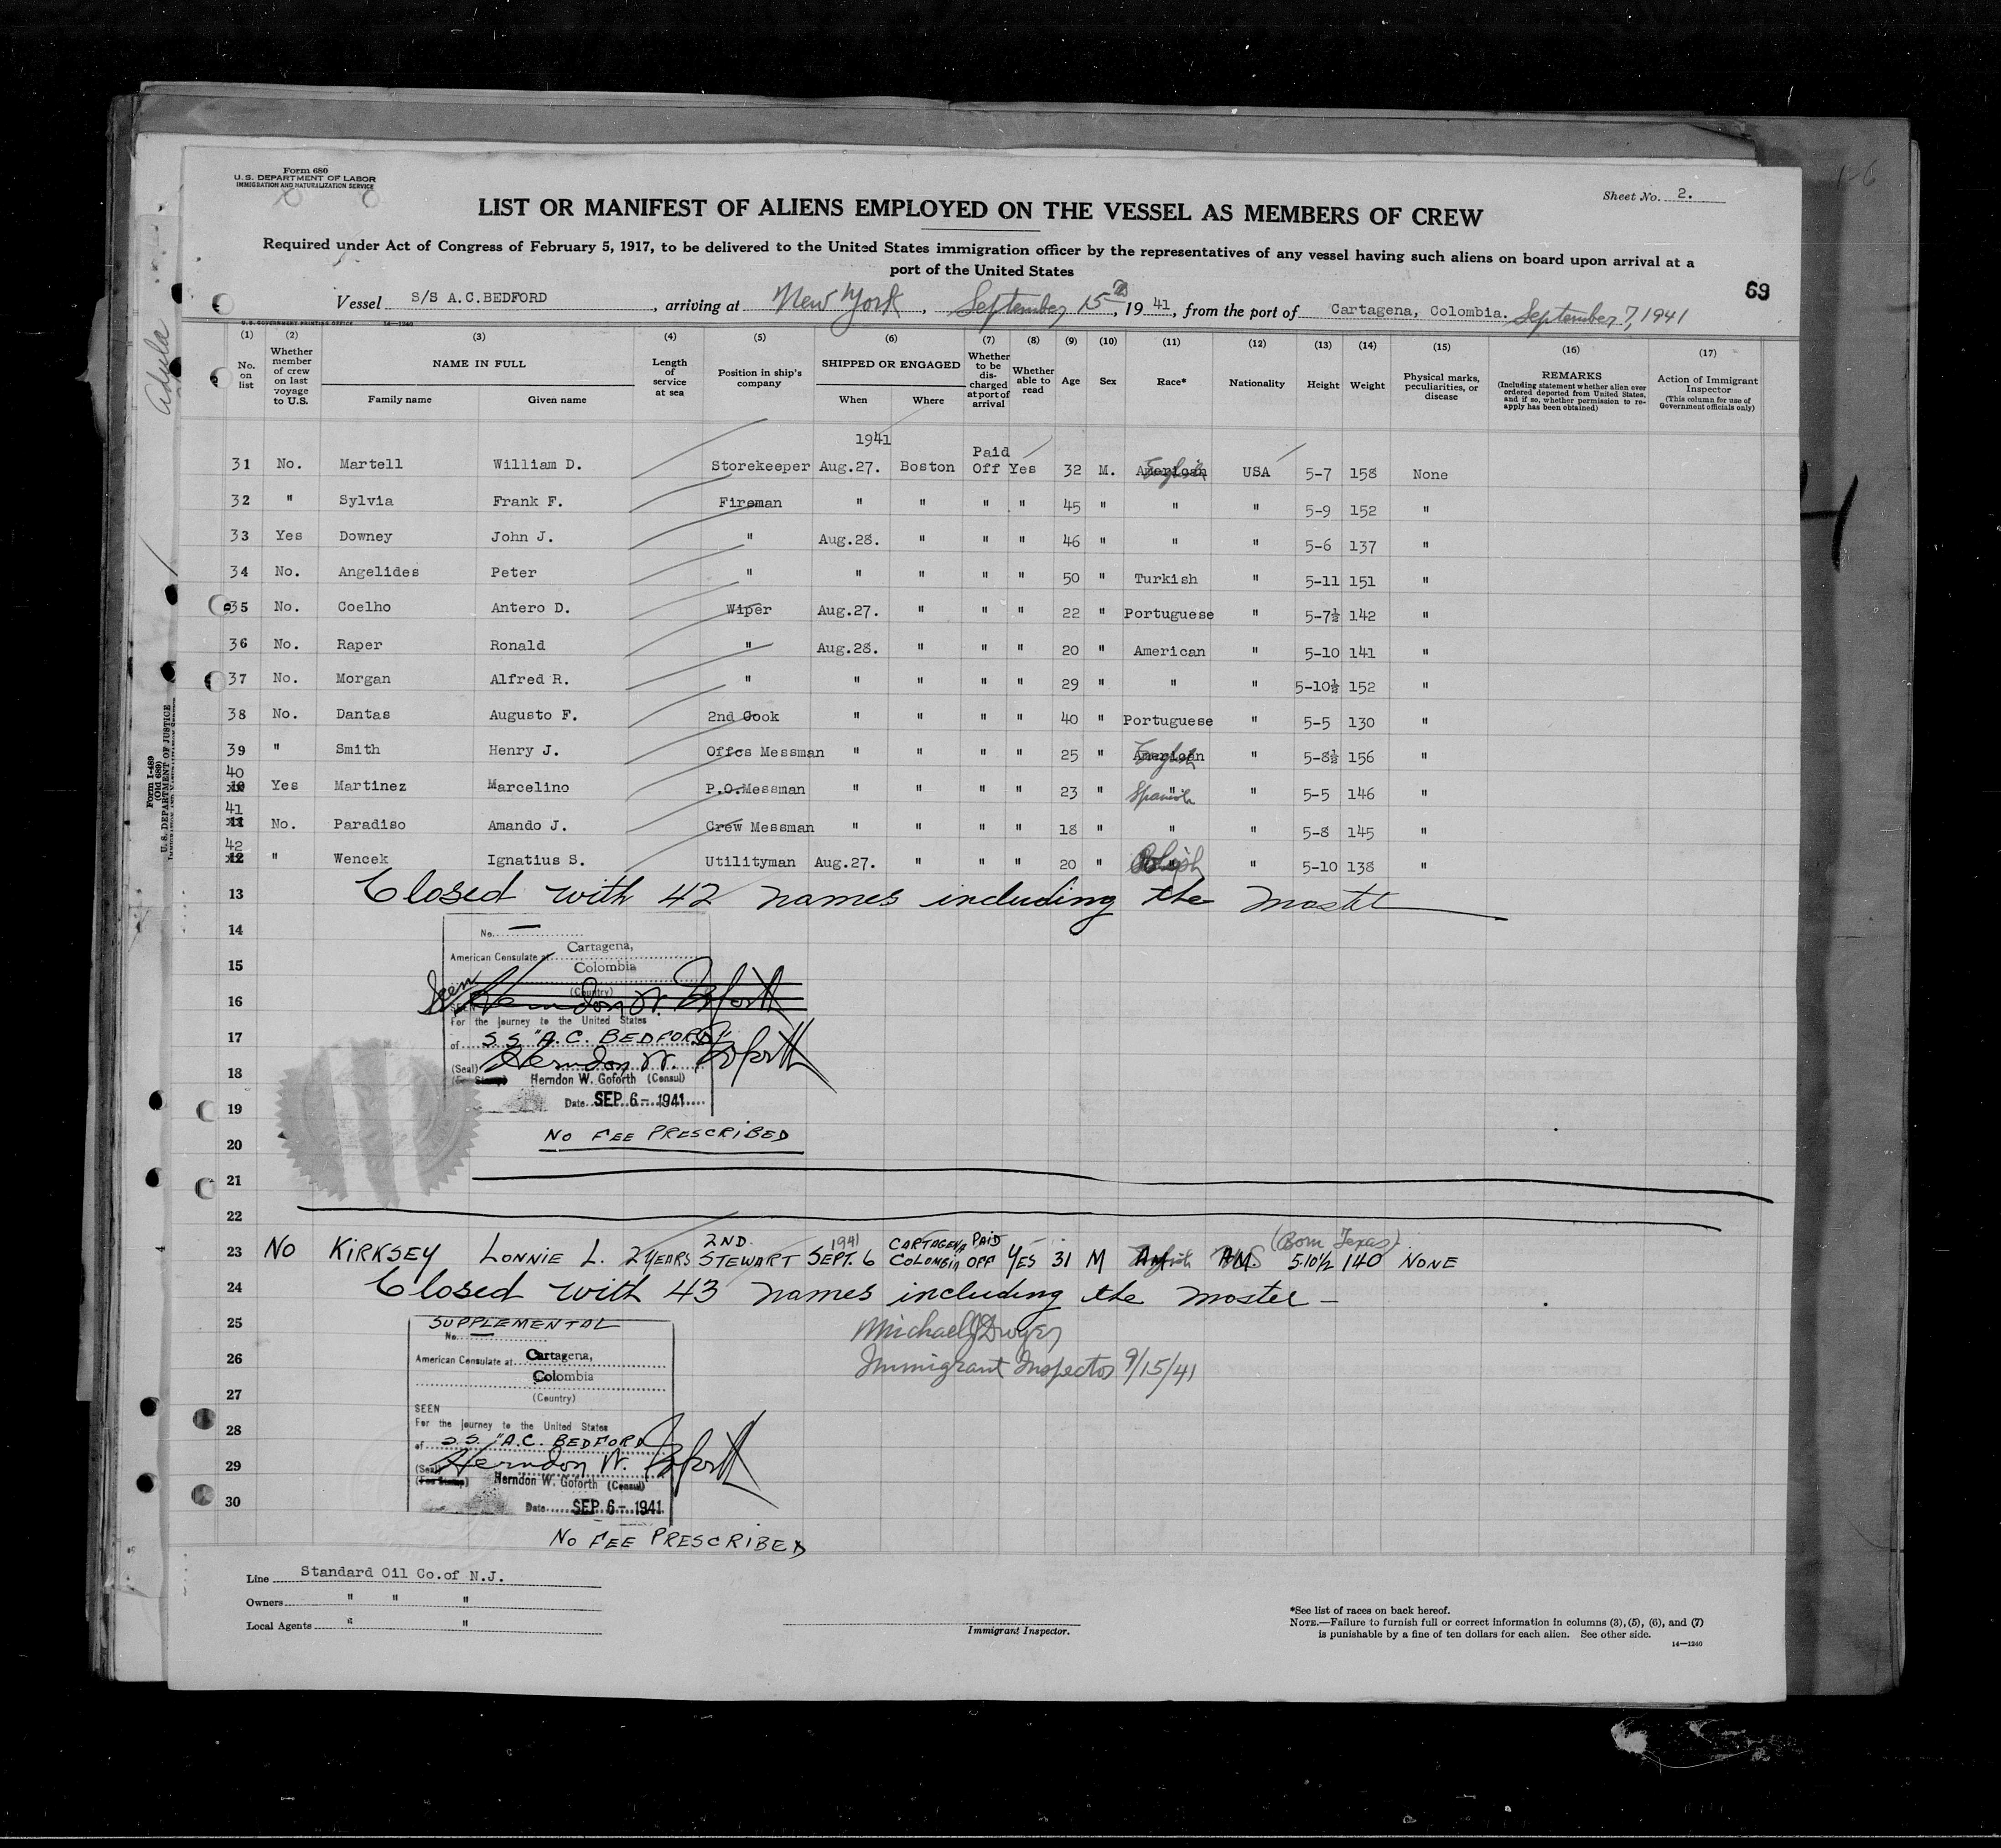 Form 680
U.S. DEPARTMENT OF LABOR
IMMIGRATION AND NATURALIZATION SERVICE
Sheet No. 2.
LIST OR MANIFEST OF ALIENS EMPLOYED ON THE VESSEL AS MEMBERS OF CREW
Required under Act of Congress of February 5, 1917, to be delivered to the United States immigration officer by the representatives of any vessel having such aliens on board upon arrival at a
port of the United States
69
Vessel S/S A.C.BEDFORD, arriving at New York, September 15th, 1941, from the port of Cartagena, Colombia. September 7, 1941
U.S. GOVERNMENT PRINTING OFFICE 14—1240
(1) No. on list (2) Whether member of crew on last voyage to U.S. (3) NAME IN FULL Family name Given name (4) Length of service at sea (5) Position in ship's company (6) SHIPPED OR ENGAGED When Where (7) Whether to be discharged at port of arrival (8) Whether able to read (9) Age (10) Sex (11) Race* (12) Nationality (13) Height (14) Weight (15) Physical marks, peculiarities, or disease (16) REMARKS (Including statement whether alien ever ordered deported from United States, and if so, whether permission to reapply has been obtained) (17) Action of Immigrant Inspector (This column for use of Government officials only)
1941
31 No. Martell William D. Storekeeper Aug.27. Boston Paid Off Yes 32 M. American English USA 5-7 158 None
32 " Sylvia Frank F. Fireman " " " " 45 " " " 5-9 152 "
33 Yes Downey John J. " Aug.28. " " " 46 " " " 5-6 137 "
34 No. Angelides Peter " " " " " 50 " Turkish " 5-11 151 "
35 No. Coelho Antero D. Wiper Aug.27. " " " 22 " Portuguese " 5-7½ 142 "
36 No. Raper Ronald " Aug.28. " " " 20 " American " 5-10 141 "
37 No. Morgan Alfred R. " " " " " 29 " " " 5-10½ 152 "
38 No. Dantas Augusto F. 2nd Cook " " " " 40 " Portuguese " 5-5 130 "
39 " Smith Henry J. Offcs Messman " " " " 25 " American English " 5-8½ 156 "
40 10 Yes Martinez Marcelino P.O.Messman " " " " 23 " " Spanish " 5-5 146 "
41 11 No. Paradiso Amando J. Crew Messman " " " " 18 " " " 5-8 145 "
42 12 " Wencek Ignatius S. Utilityman Aug.27. " " " 20 " Polish " 5-10 138 "
13 Closed with 42 names including the master
14 No.
15 American Consulate at Cartagena,
Colombia
16 (Country)
Seen Herndon W. Goforth
SEEN
For the journey to the United States
17 of S.S. "A.C. BEDFORD"
Herndon W. Goforth
18 (Seal) Herndon W. Goforth (Consul)
(Fee Stamp)
19 Date SEP 6 - 1941
20 NO FEE PRESCRIBED
21
22
23 NO KIRKSEY LONNIE L. 2 YEARS 2ND. STEWART 1941 SEPT. 6 CARTAGENA COLOMBIA PAID OFF YES 31 M AM English AM. US (Born Texas) 5-10½ 140 NONE
24 Closed with 43 names including the master -
25 SUPPLEMENTAL
No.
Michael J Dwyer
26 American Consulate at Cartagena,
Immigrant Inspector 9/15/41
Colombia
27 (Country)
SEEN
28 For the journey to the United States
of S.S. "A.C. BEDFORD
29 Herndon W. Goforth
(Seal)
(Fee Stamp) Herndon W. Goforth (Consul)
30 Date SEP 6 - 1941
NO FEE PRESCRIBED
Line Standard Oil Co.of N.J.
Owners " " "
Local Agents " "
Immigrant Inspector.
*See list of races on back hereof.
NOTE.—Failure to furnish full or correct information in columns (3), (5), (6), and (7)
is punishable by a fine of ten dollars for each alien. See other side.
14—1240
Form I-489
(Old 689)
U. S. DEPARTMENT OF JUSTICE